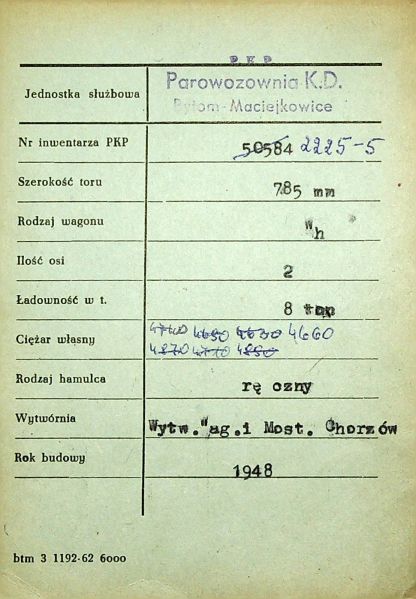 PKP
Jednostka służbowa Parowozownia K.D.
Bytom-Maciejkowice
Nr inwentarza PKP 50584 2225-5
Szerokość toru 785 mm
Rodzaj wagonu Wh
Ilość osi 2
Ładowność w t. 8 ton
Ciężar własny 4740 4650 4630 4660
4870 4710 4850
Rodzaj hamulca rę czny
Wytwórnia Wytw.Wag.i Most. Chorzów
Rok budowy 1948
btm 3 1192-62 6000